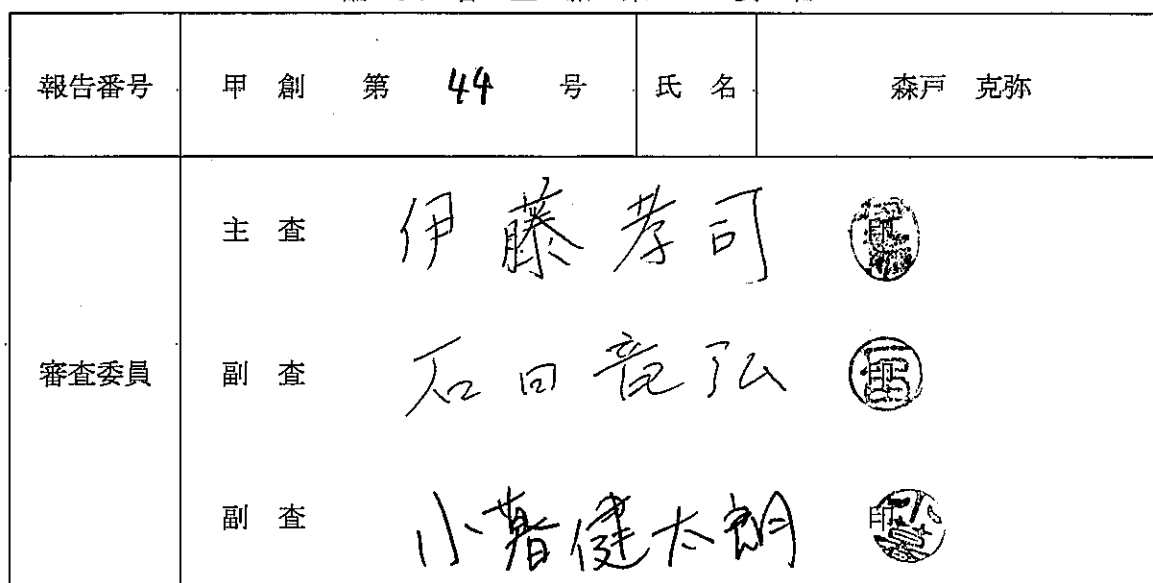 報告番号 甲 創 第 44 号 氏 名 森戸 克弥
主 査 伊藤孝司 印
審査委員 副 査 石田竜弘 印
副 査 小暮健太朗 印